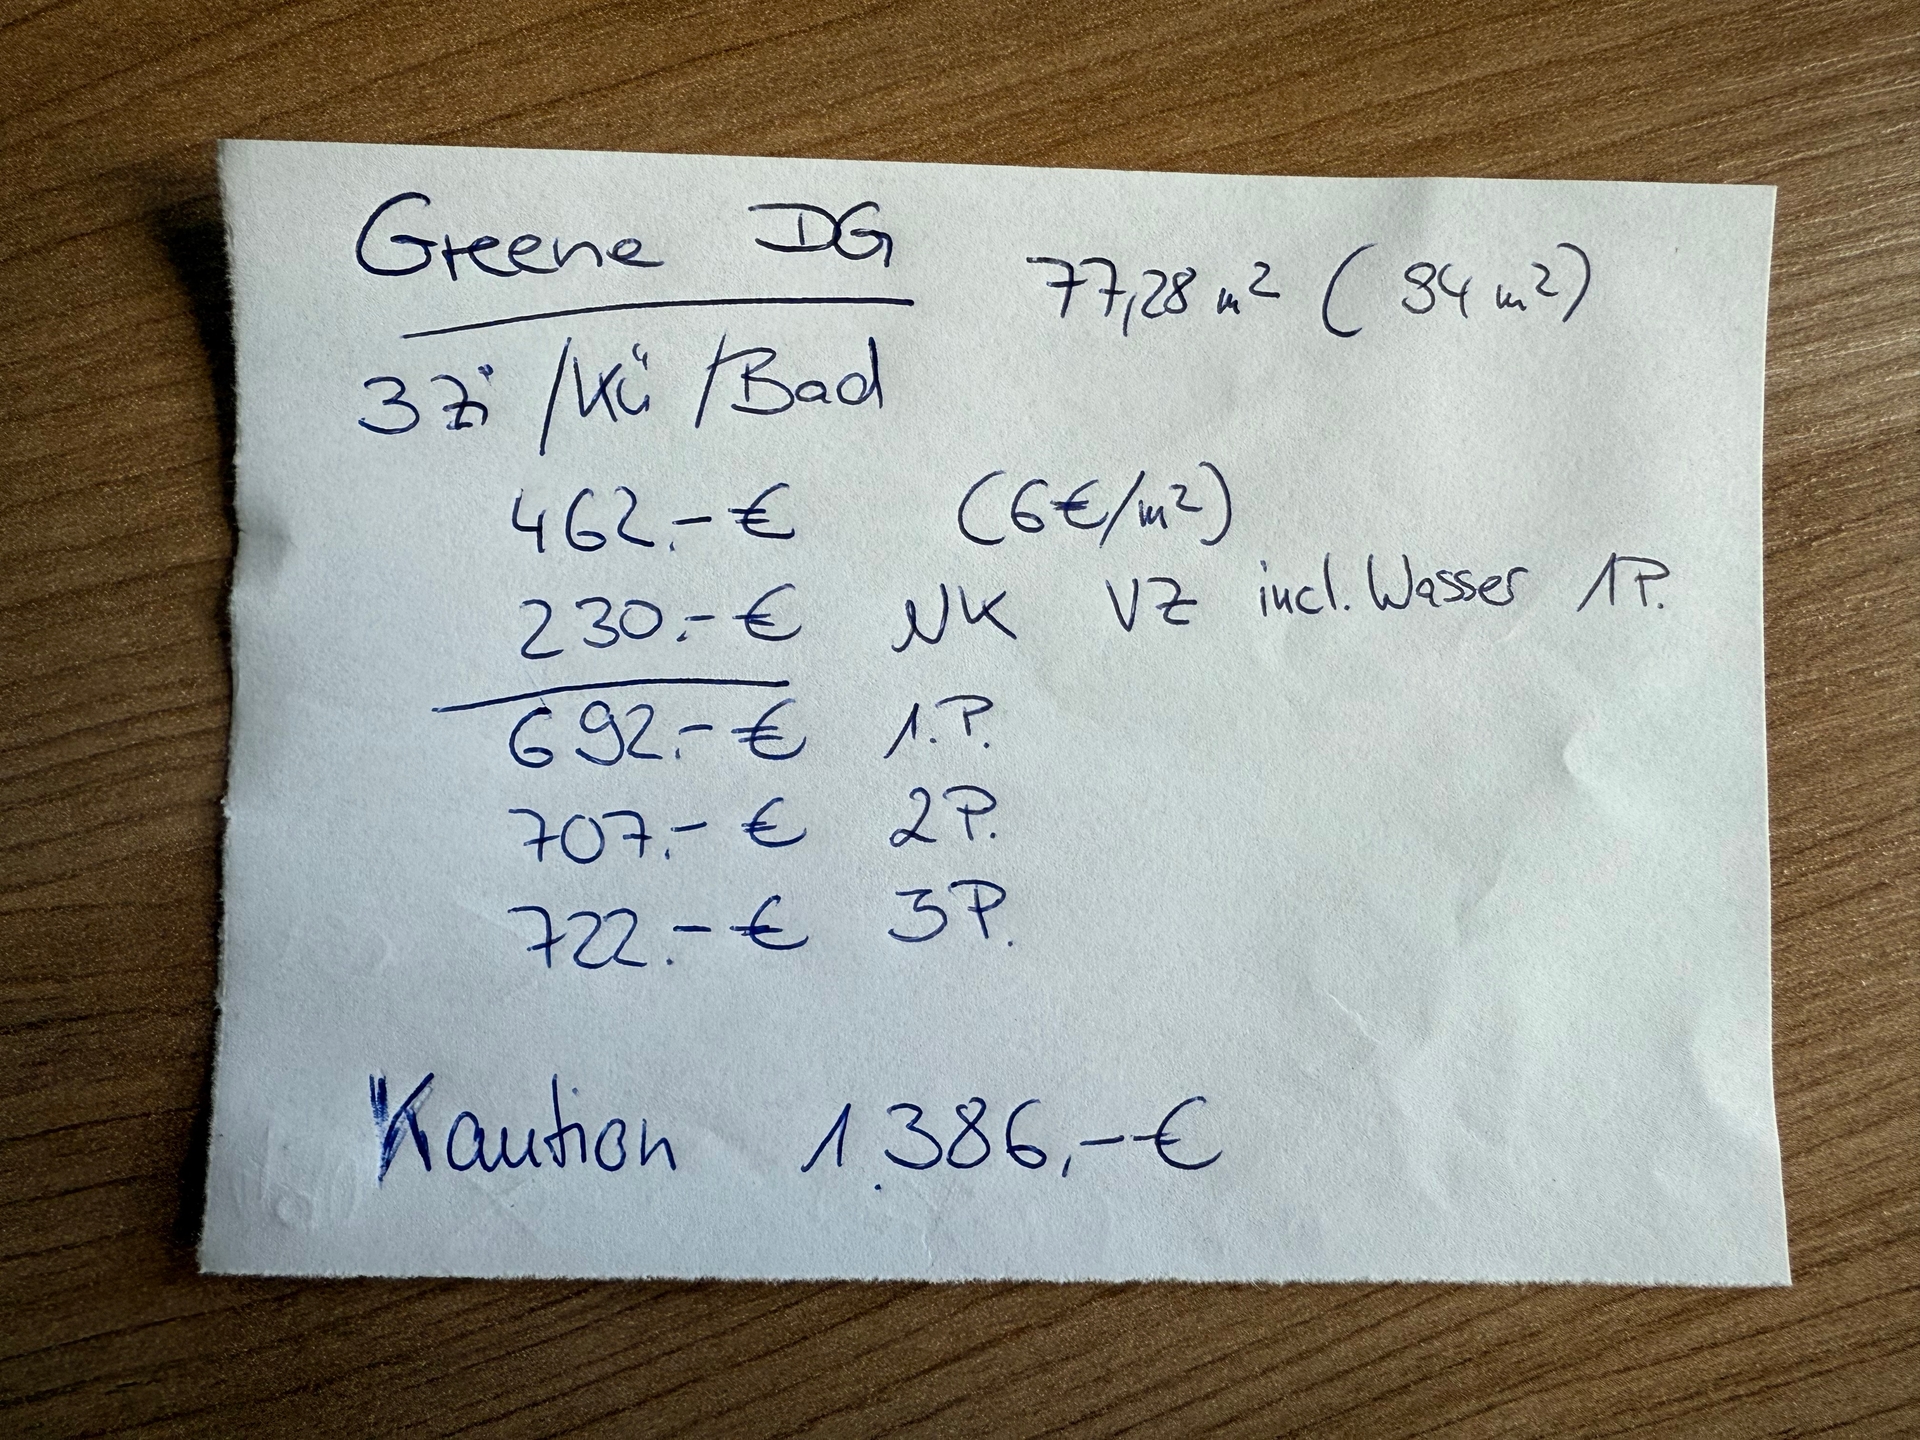 Greene DG
77,28 m² (94 m²)
3 Zi /Kü /Bad
462.- € (6€/m²)
230.- € NK VZ incl. Wasser 1P.
692.- € 1.P.
707.- € 2P.
722.- € 3P.
Kaution 1.386,-€